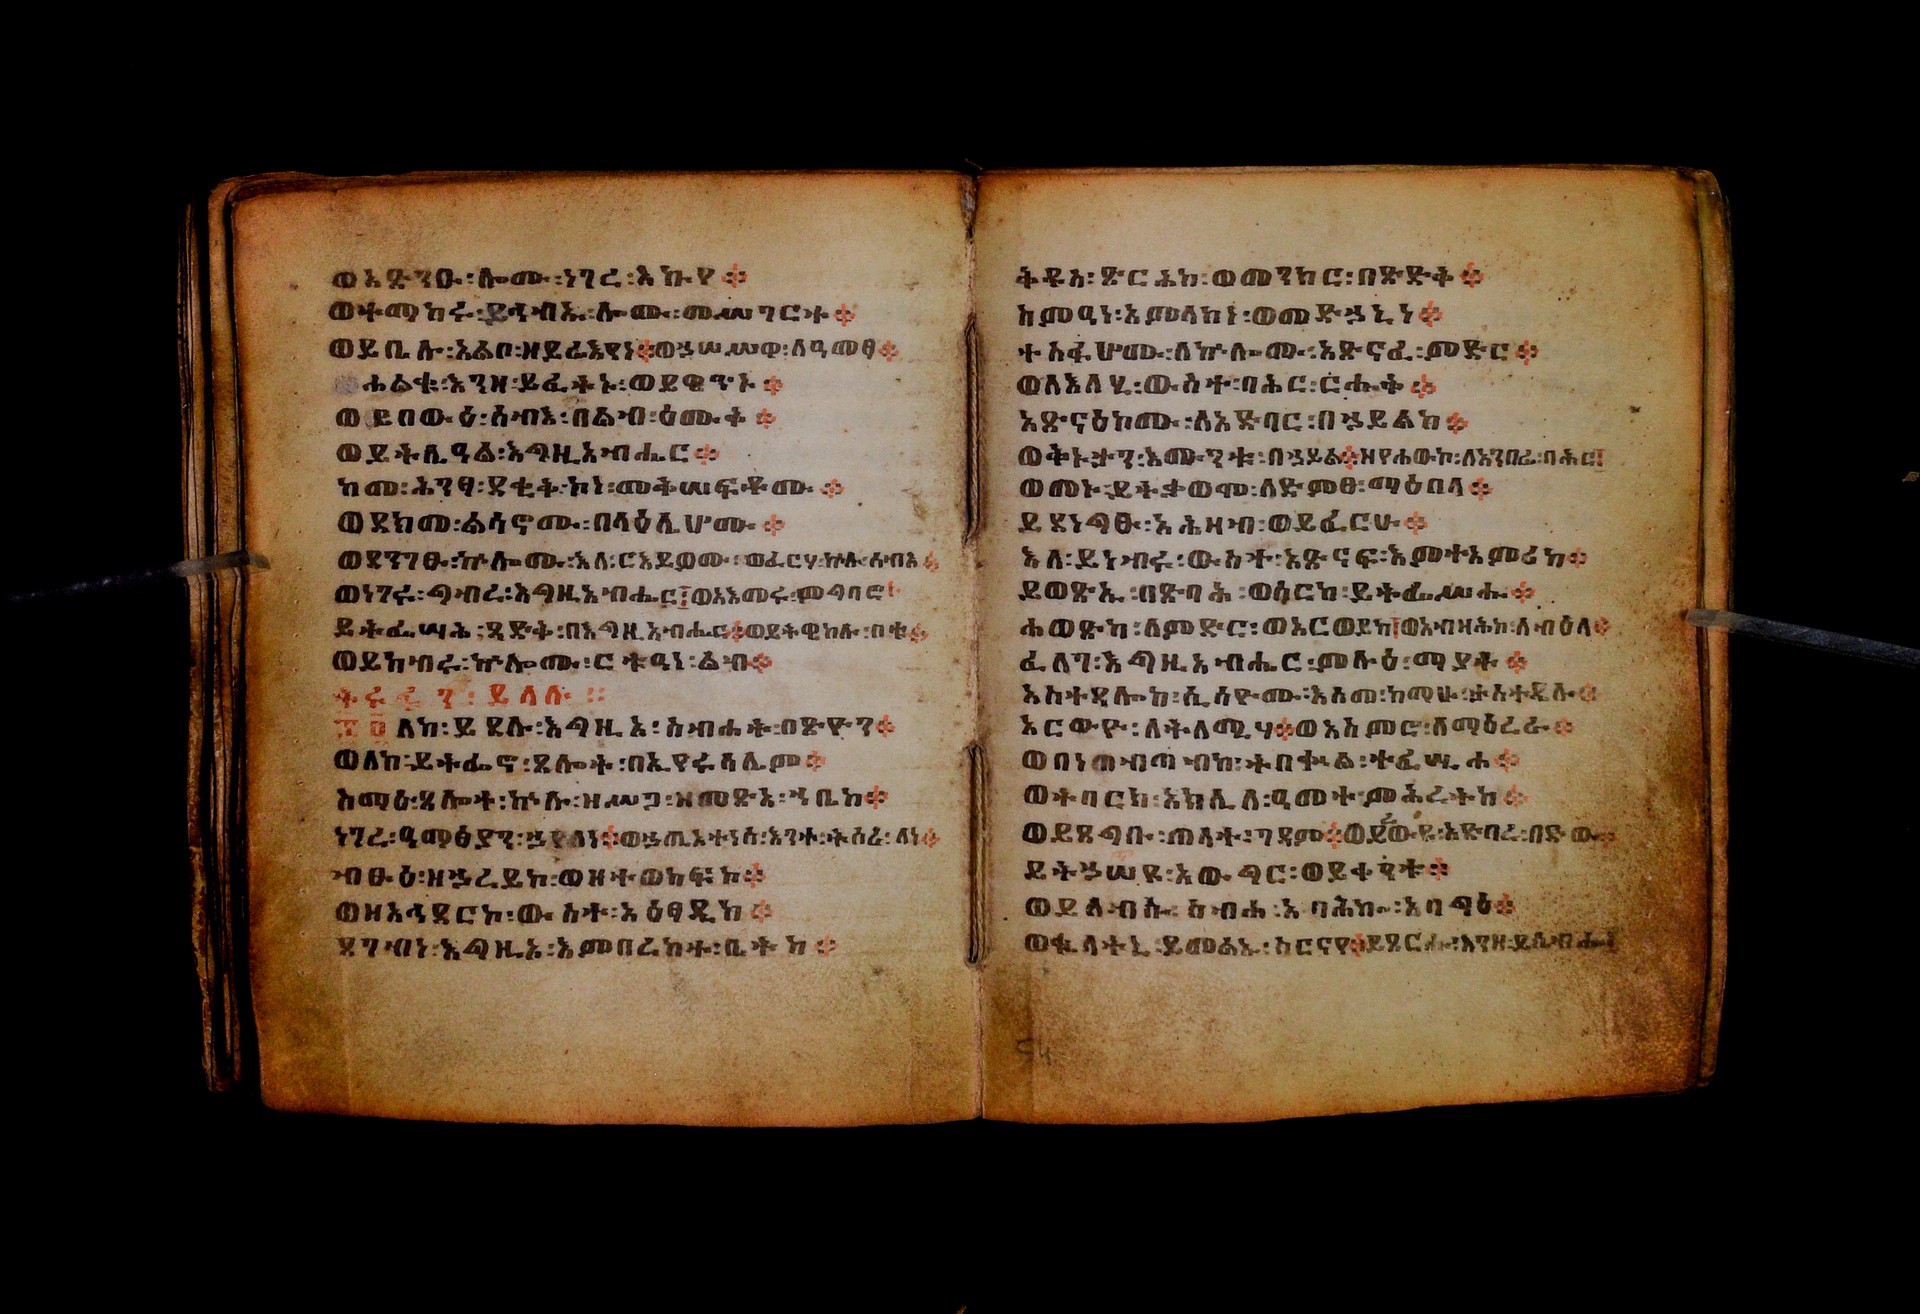 ወአጽንዑ፡ሎሙ፡ነገረ፡እኩየ።
ወተማከሩ፡ይኅብኡ፡ሎሙ፡መሣግርተ።
ወይቤሉ፡አልቦ፡ዘይሬእየነ።ወኀሠሥዋ፡ለዓመፃ።
ሐልቁ፡እንዘ፡ይፈትኑ፡ወይዌጥኑ።
ወይበውዕ፡ሰብእ፡በልብ፡ዕሙቅ።
ወይትሌዓል፡እግዚአብሔር።
ከመ፡ሕንፃ፡ደቂቅ፡ኮነ፡መቅሠፍቶሙ።
ወደክመ፡ልሳኖሙ፡በላዕሌሆሙ።
ወደንገፁ፡ኵሎሙ፡እለ፡ርእይዎሙ፡ወፈርሃ፡ኵሉ፡ሰብእ።
ወነገሩ፡ግብረ፡እግዚአብሔር፡ወአእመሩ፡ምግባሮ፡
ይትፌሣሕ፡ጻድቅ፡በእግዚአብሔር።ወይትዌከል፡ቦቱ።
ወይከብሩ፡ኵሎሙ፡ርቱዓነ፡ልብ።
ለከ፡ይደሉ፡እግዚኦ፡ስብሐት፡በጽዮን።
ወለከ፡ይትፌኖ፡ጸሎት፡በኢየሩሳሌም።
ስማዕ፡ጸሎተ፡ኵሉ፡ዘሥጋ፡ዘመጽአ፡ኀቤከ።
ነገረ፡ዓማፅያን፡ኀየለነ።ወኀጢአተነሰ፡አንተ፡ትሰሪ፡ለነ።
ብፁዕ፡ዘኀረይከ፡ወዘተወከፍከ።
ወዘአኅደርከ፡ውስተ፡አዕፃዲከ።
ጸግብነ፡እግዚኦ፡እምበረከተ፡ቤትከ።
ቅዱስ፡ጽርሕከ፡ወመንክር፡በጽድቅ።
ስምዓነ፡አምላክነ፡ወመድኀኒነ።
ተስፋሆሙ፡ለኵሎሙ፡አጽናፈ፡ምድር።
ወለእለሂ፡ውስተ፡ባሕር፡ርሑቅ።
አጽናዕኮሙ፡ለአድባር፡በኀይልከ።
ወቅኑታን፡እሙንቱ፡በኀይል።ዘየሐውኮ፡ለአንበረ፡ባሕር፡
ወመኑ፡ይትቃወሞ፡ለድምፀ፡ማዕበላ።
ይደነግፁ፡አሕዛብ፡ወይፈርሁ።
እለ፡ይነብሩ፡ውስተ፡አጽናፍ፡እምተአምሪከ።
ይወጽኡ፡በጽባሕ፡ወሰርከ፡ይትፌሥሑ።
ሐወጽካ፡ለምድር፡ወአርወይካ፡ወአብዛሕኮ፡ለብዕላ።
ፈለገ፡እግዚአብሔር፡ምሉዕ፡ማያተ።
አስተዳሎከ፡ሲሳዮሙ፡እስመ፡ከማሁ፡ታስተዴሉ።
አርውዮ፡ለትለሚሃ።ወአስምሮ፡ለማዕረራ።
ወበነጠብጣብከ፡ትበቍል፡ተፈሢሓ።
ወትባርክ፡አክሊለ፡ዓመተ፡ምሕረትከ።
ወይጸግቡ፡ጠላተ፡ገዳም።ወይረውዩ፡አድባረ፡በድው።
ይትኀሠዩ፡አውግር፡ወይቀንቱ።
ወይለብሱ፡ስብሐ፡አባሕኰ፡አባግዕ።
ወቈላትኒ፡ይመልኡ፡ስርናየ።ይጸርሑ፡እንዘ፡ይሴብሑ፡